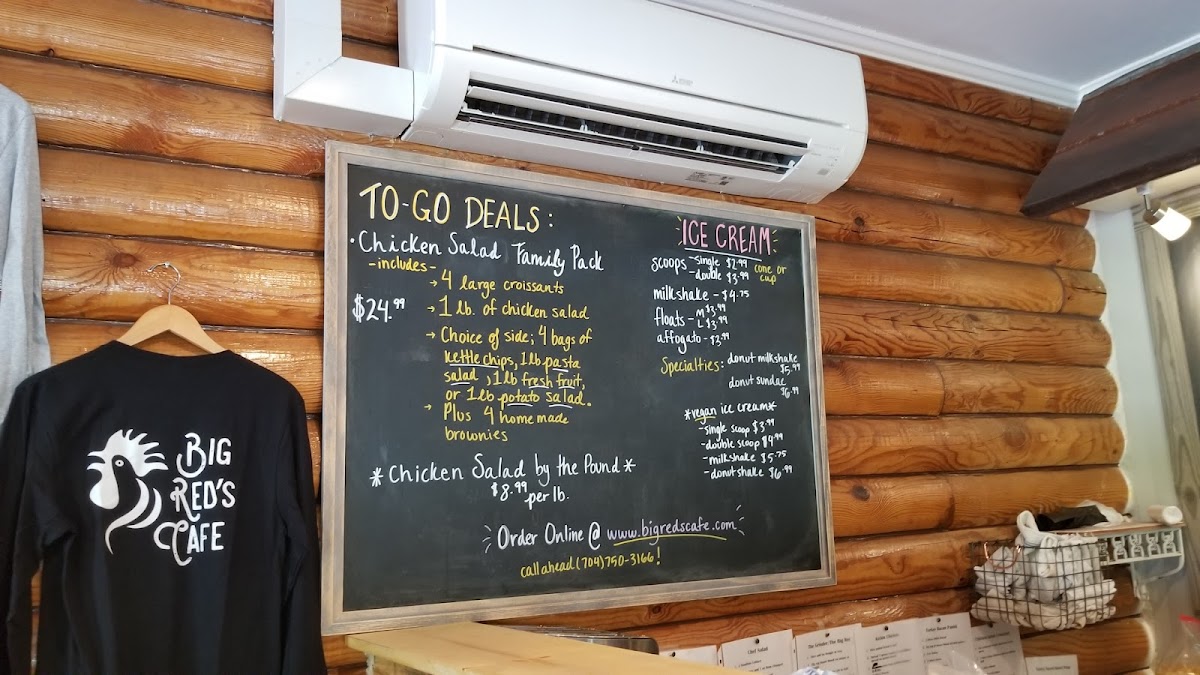 MITSUBISHI
TO-GO DEALS:
·Chicken Salad Family Pack
-includes-
→ 4 large croissants
$24.99
→ 1 lb. of chicken salad
→ Choice of side; 4 bags of
kettle chips, 1 lb pasta
salad, 1 lb fresh fruit,
or 1 lb potato salad.
→ Plus 4 homemade
brownies
*Chicken Salad by the Pound*
$8.99
per lb.
ICE CREAM
scoops -single $2.99
-double $3.99
cone or
cup
milkshake - $4.75
floats - M $3.99
L $3.99
affogato - $3.99
Specialties: donut milkshake
$5.99
donut sundae
$6.99
*vegan ice cream*
-single scoop $3.99
-double scoop $4.99
-milkshake $5.75
-donut shake $6.99
Order Online @ www.bigredscafe.com
call ahead (704)750-3166!
BIG
RED'S
CAFE
Chef Salad